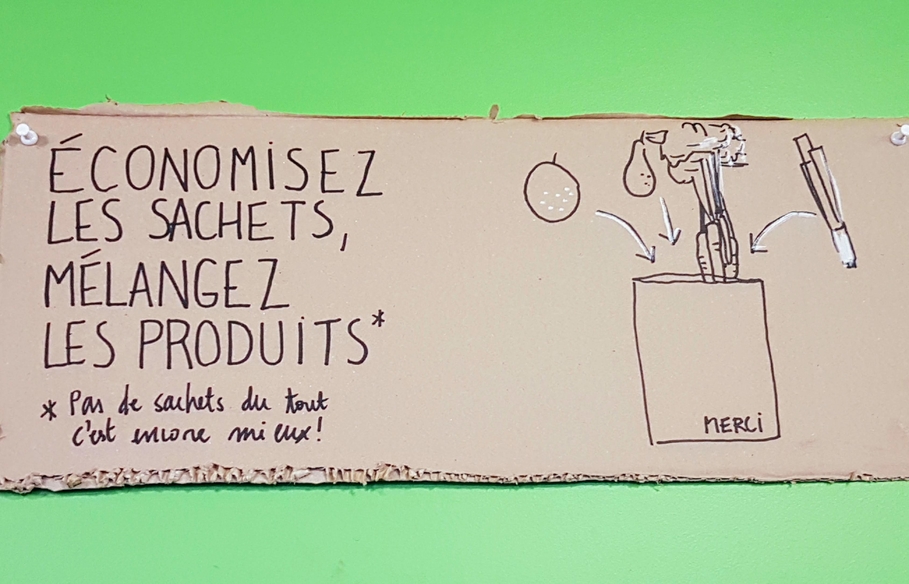 ÉCONOMISEZ
LES SACHETS,
MÉLANGEZ
LES PRODUITS*
* Pas de sachets du tout
c'est encore mieux!
MERCI